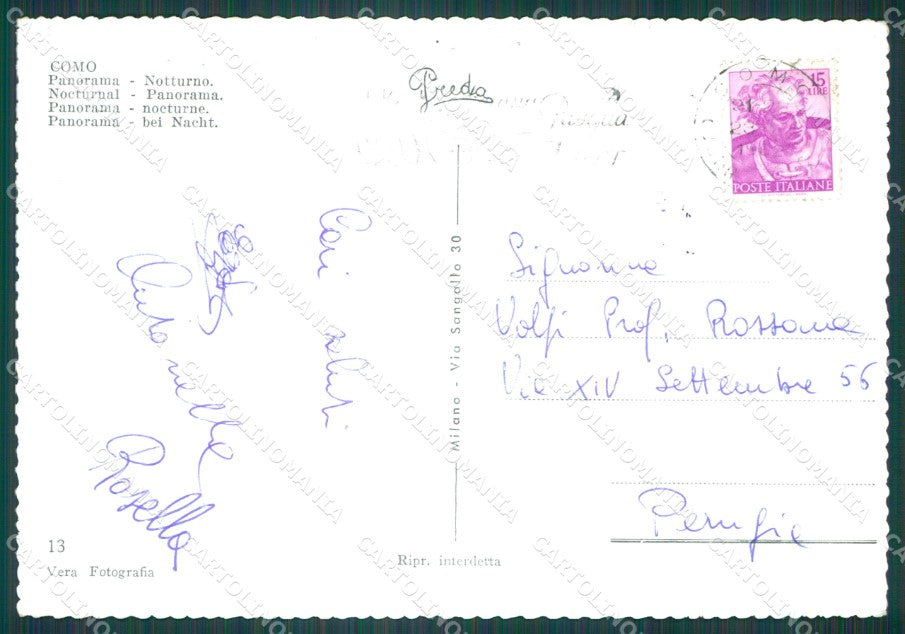 COMO
Panorama - Notturno.
Nocturnal - Panorama.
Panorama - nocturne.
Panorama - bei Nacht.
15
LIRE
POSTE ITALIANE
Cari saluti
Rosella
Milano - Via Sangallo 30
Signorina
Volpi Prof. Rossana
Via XIV Settembre 56
Perugia
13
Vera Fotografia
Ripr. interdetta
CARTOLINOMANIA